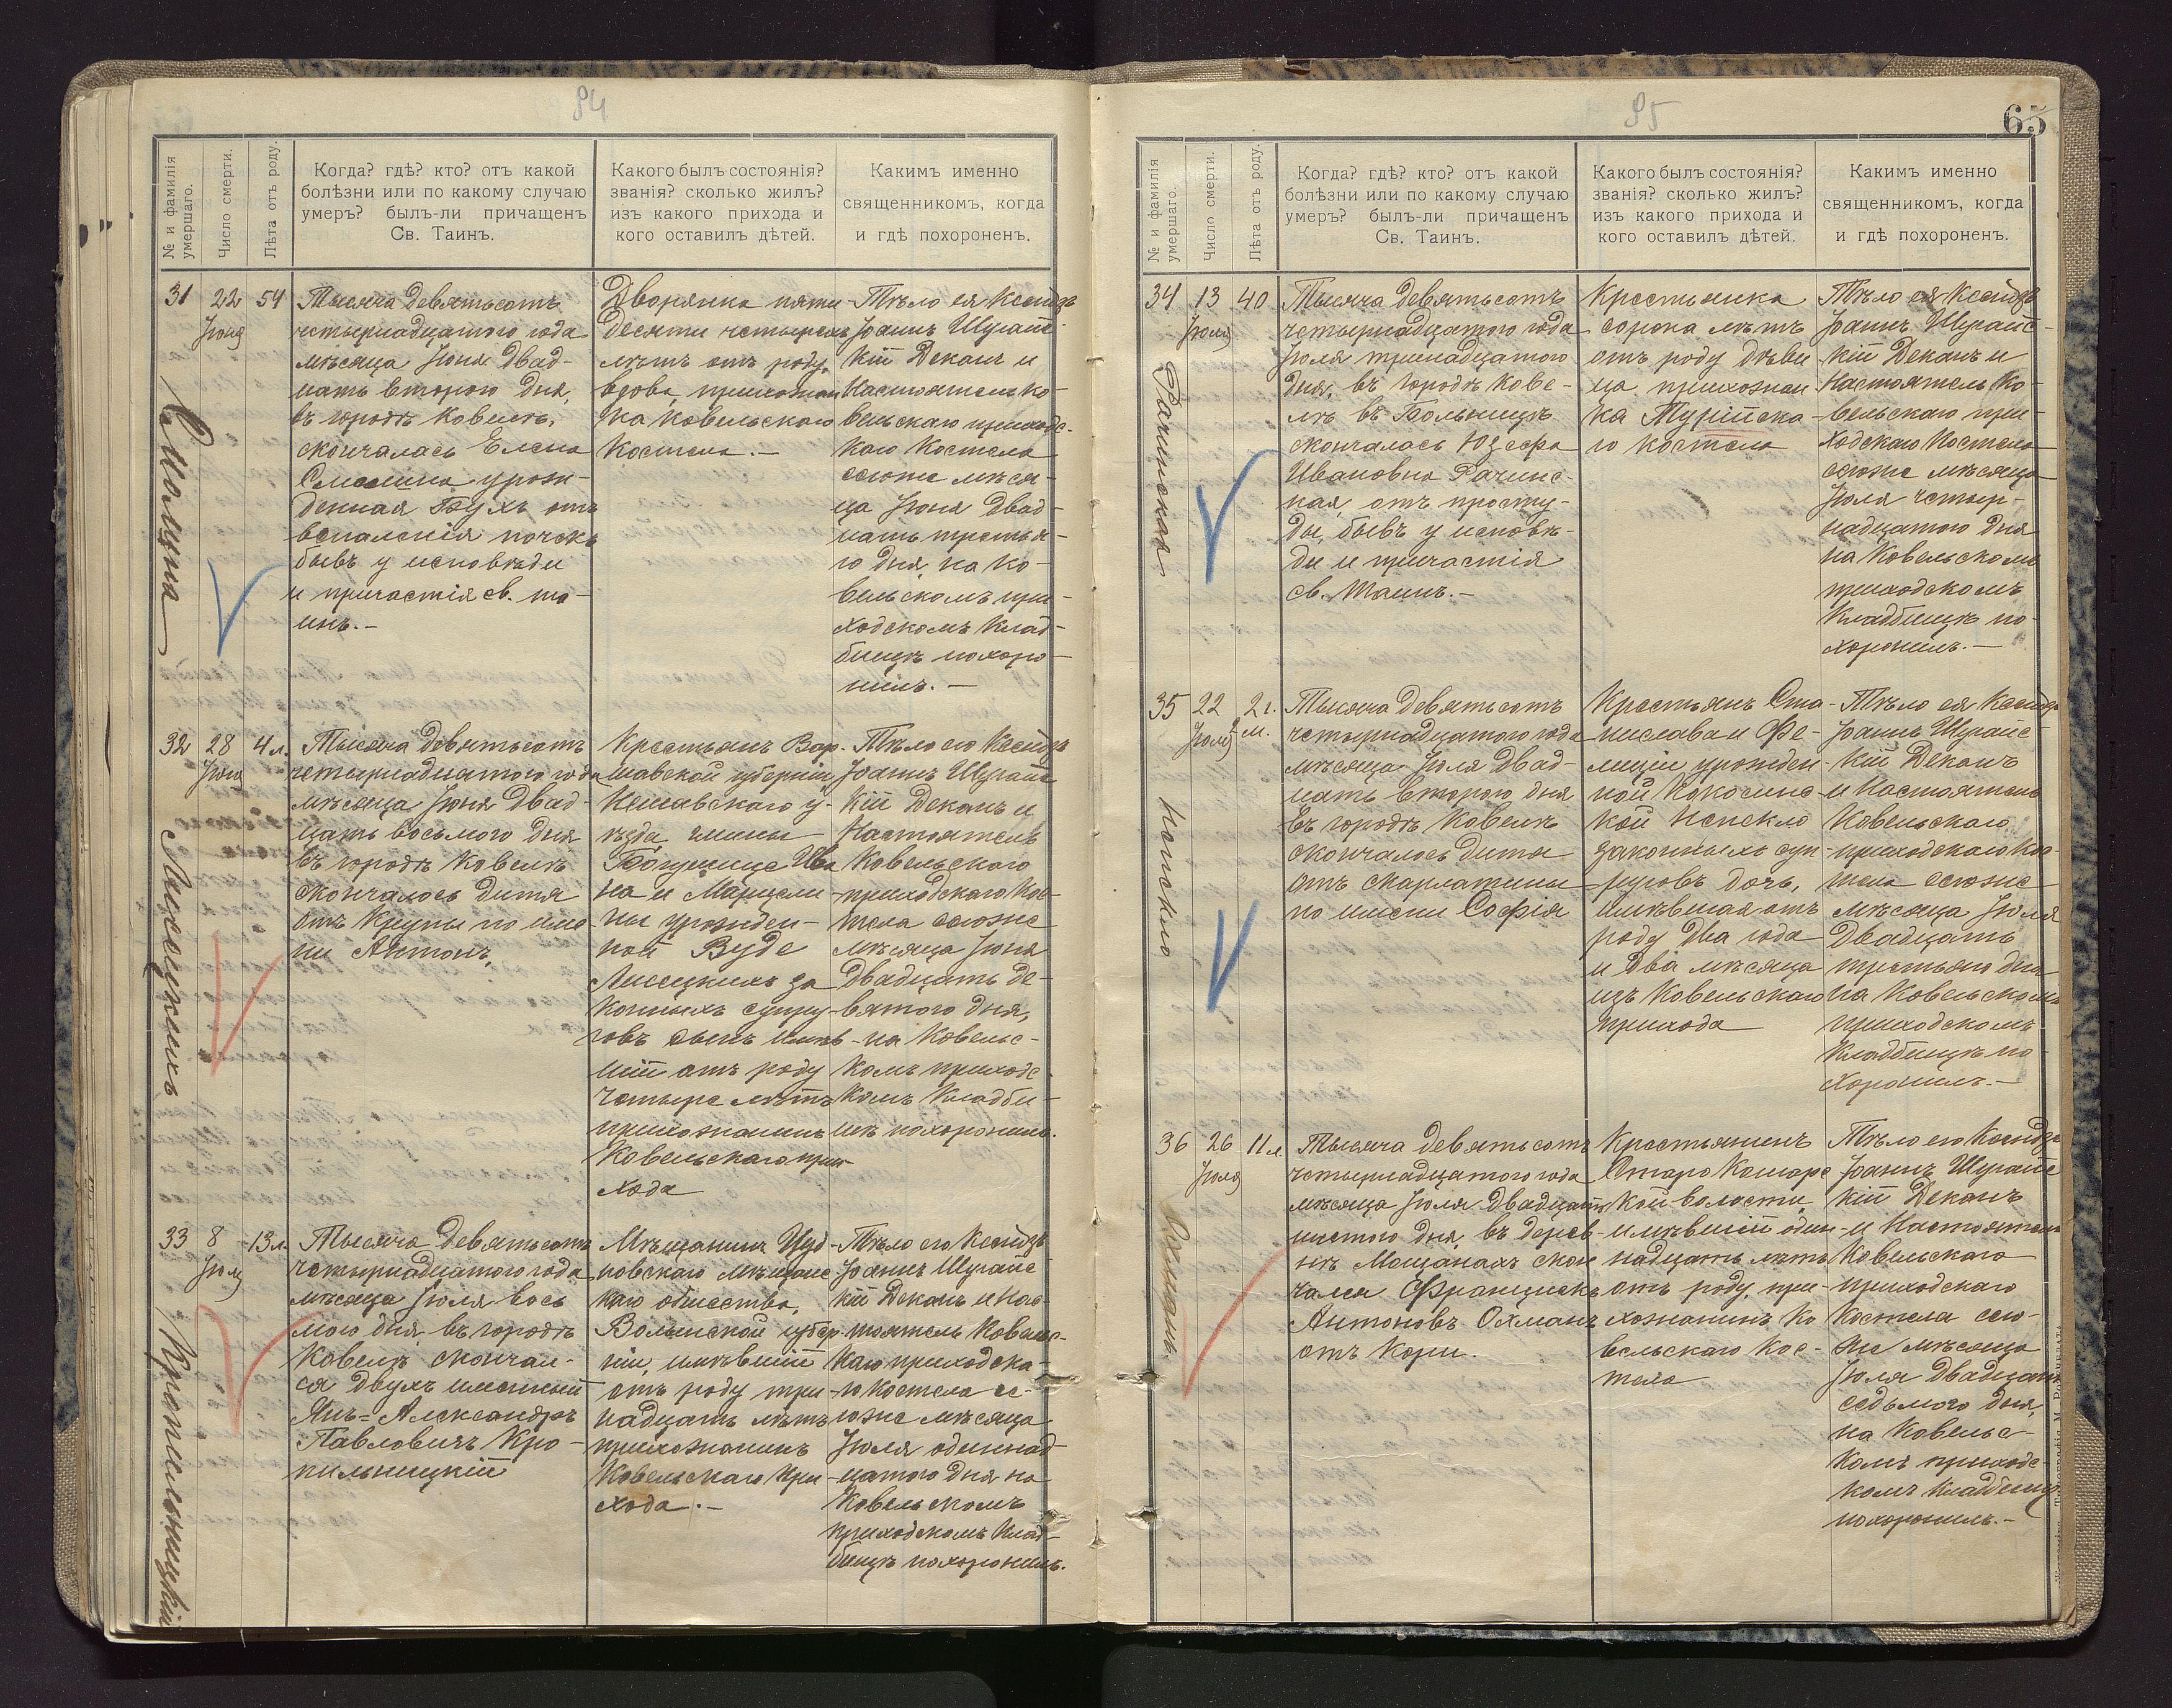 84
№ и фамилія умершаго.
Число смерти.
Лѣта отъ роду.
Когда? гдѣ? кто? отъ какой
болѣзни или по какому случаю
умеръ? былъ-ли причащенъ
Св. Таинъ.
Какого былъ состоянія?
званія? сколько жилъ?
изъ какого прихода и
кого оставилъ дѣтей.
Какимъ именно
священникомъ, когда
и гдѣ похороненъ.
31
22
Іюня
54
Тысяча девятьсотъ
четырнадцатого года
мѣсяца Іюня двад-
цать второго дня,
въ городѣ Ковелѣ,
скончалась Елена
Смолина урож-
денная Бухъ отъ
воспаленія почекъ
бывъ у исповѣди
и причастія св. та-
инъ.-
Дворянка пяти-
десяти четырехъ
лѣтъ отъ роду,
вдова, прихожан
ка Ковельскаго
Костела.-
Тѣло ея Ксендзъ
Іоаннъ Шуганс-
кій Деканъ и
Настоятель Ко-
вельскаго приходс-
каго Костела
сегоже мѣся-
ца Іюня двад-
цать третья-
го дня, на Ко-
вельскомъ при-
ходскомъ клад-
бищѣ похоро-
нилъ.-
Смолина
32
28
Іюня
4 л.
Тысяча девятьсотъ
четырнадцатого года
мѣсяца Іюня двад-
цать восьмого дня
въ городѣ Ковелѣ
скончалось дитя
отъ крупы по име
ни Антонъ,
Крестьянъ Вар-
шавской губерніи,
Нешавскаго у-
ѣзда, гмины
Богушице Ива
на и Марцели-
ны урожден-
ной Вуде
Лисецкихъ за
конныхъ супру-
говъ сынъ имѣв-
шій отъ роду
четыре лѣтъ
прихожанинъ
Ковельскаго при-
хода
Тѣло его Ксендзъ
Іоаннъ Шуганс
кій Деканъ и
Настоятель
Ковельского
приходскаго Кос-
тела сегоже
мѣсяца Іюня
двадцать де-
вятого дня,
на Ковельс-
комъ приходс-
комъ кладби-
щѣ похоронилъ.
Лисецкихъ
33
8
Іюля
13 л.
Тысяча девятьсотъ
четырнадцатого года
мѣсяца Іюля вось
мого дня, въ городѣ
Ковелѣ скончал-
ся двухъ именный
Янъ=Александръ
Павловичъ Кро-
пильницкій
Мѣщанинъ Чуд-
новскаго мѣщанс
каго общества,
Волынской губер-
ніи, имѣвшій
отъ роду три-
надцать лѣтъ
прихожанинъ
Ковельскаго при
хода.-
Тѣло его Ксендзъ
Іоаннъ Шуганс
кій Деканъ и Нас-
тоятель Ковельс-
каго приходска-
го Костела се-
гоже мѣсяца
Іюля одиннад-
цатого дня на
Ковельскомъ
приходскомъ клад-
бищѣ похоронилъ.
Кропильницкій
85
65
№ и фамилія умершаго.
Число смерти.
Лѣта отъ роду.
Когда? гдѣ? кто? отъ какой
болѣзни или по какому случаю
умеръ? былъ-ли причащенъ
Св. Таинъ.
Какого былъ состоянія?
званія? сколько жилъ?
изъ какого прихода и
кого оставилъ дѣтей.
Какимъ именно
священникомъ, когда
и гдѣ похороненъ.
34
13
Іюля
40
Тысяча девятьсотъ
четырнадцатого года
Іюля тринадцатого
дня, въ городѣ Кове-
лѣ въ Больницѣ
скончалась Юзефа
Ивановна Рачинс-
кая, отъ просту-
ды, бывъ у исповѣ-
ди и причастія
св. Таинъ.-
Крестьянка
сорока лѣтъ
отъ роду дѣви
ца, прихожан
ка Турійска-
го костела
Тѣло ея Ксендзъ
Іоаннъ Шуганс-
кій Деканъ и
Настоятель Ко-
вельскаго при-
ходскаго Костела
сегоже мѣсяца
Іюля четыр-
надцатого дня
на Ковельскомъ
приходскомъ
Кладбищѣ по-
хоронилъ.-
Рачинская
35
22
Іюля
2 г.
2 м.
Тысяча девятьсотъ
четырнадцатого года
мѣсяца Іюля двад-
цать второго дня
въ городѣ Ковелѣ
скончалось дитя
отъ скарлатины
по имени Софія
Крестьянъ Ста-
нислава и Фе-
лиціи урожден-
ной Кокосинс-
кой Непекло
законныхъ суп-
руговъ дочь,
имѣвшая отъ
роду два года
и два мѣсяца
изъ Ковельскаго
прихода
Тѣло ея Ксендзъ
Іоаннъ Шуганс-
кій Деканъ
и Настоятель
Ковельскаго
приходскаго Кос-
тела сегоже
мѣсяца Іюля
двадцать
третьяго дня
на Ковельскомъ
приходскомъ
Кладбищѣ по-
хоронилъ.-
Непекло
36
26
Іюля
11 л.
Тысяча девятьсотъ
четырнадцатого года
мѣсяца Іюля двадцать
шестого дня, въ дерев-
нѣ Мощанахъ скон
чался Францискъ
Антоновъ Охманъ
отъ Кори.
Крестьянинъ
Старо Кошарс
кой волости,
имѣвшій один-
надцать лѣтъ
отъ роду, при-
хожанинъ Ко
вельскаго Кос-
тела
Тѣло его Ксендзъ
Іоаннъ Шуганс
кій Деканъ
и Настоятель
Ковельскаго
приходскаго
Костела сего-
же мѣсяца
Іюля двадцать
седьмого дня,
на Ковельс-
комъ приходс-
комъ кладбищѣ
похоронилъ.-
Охманъ